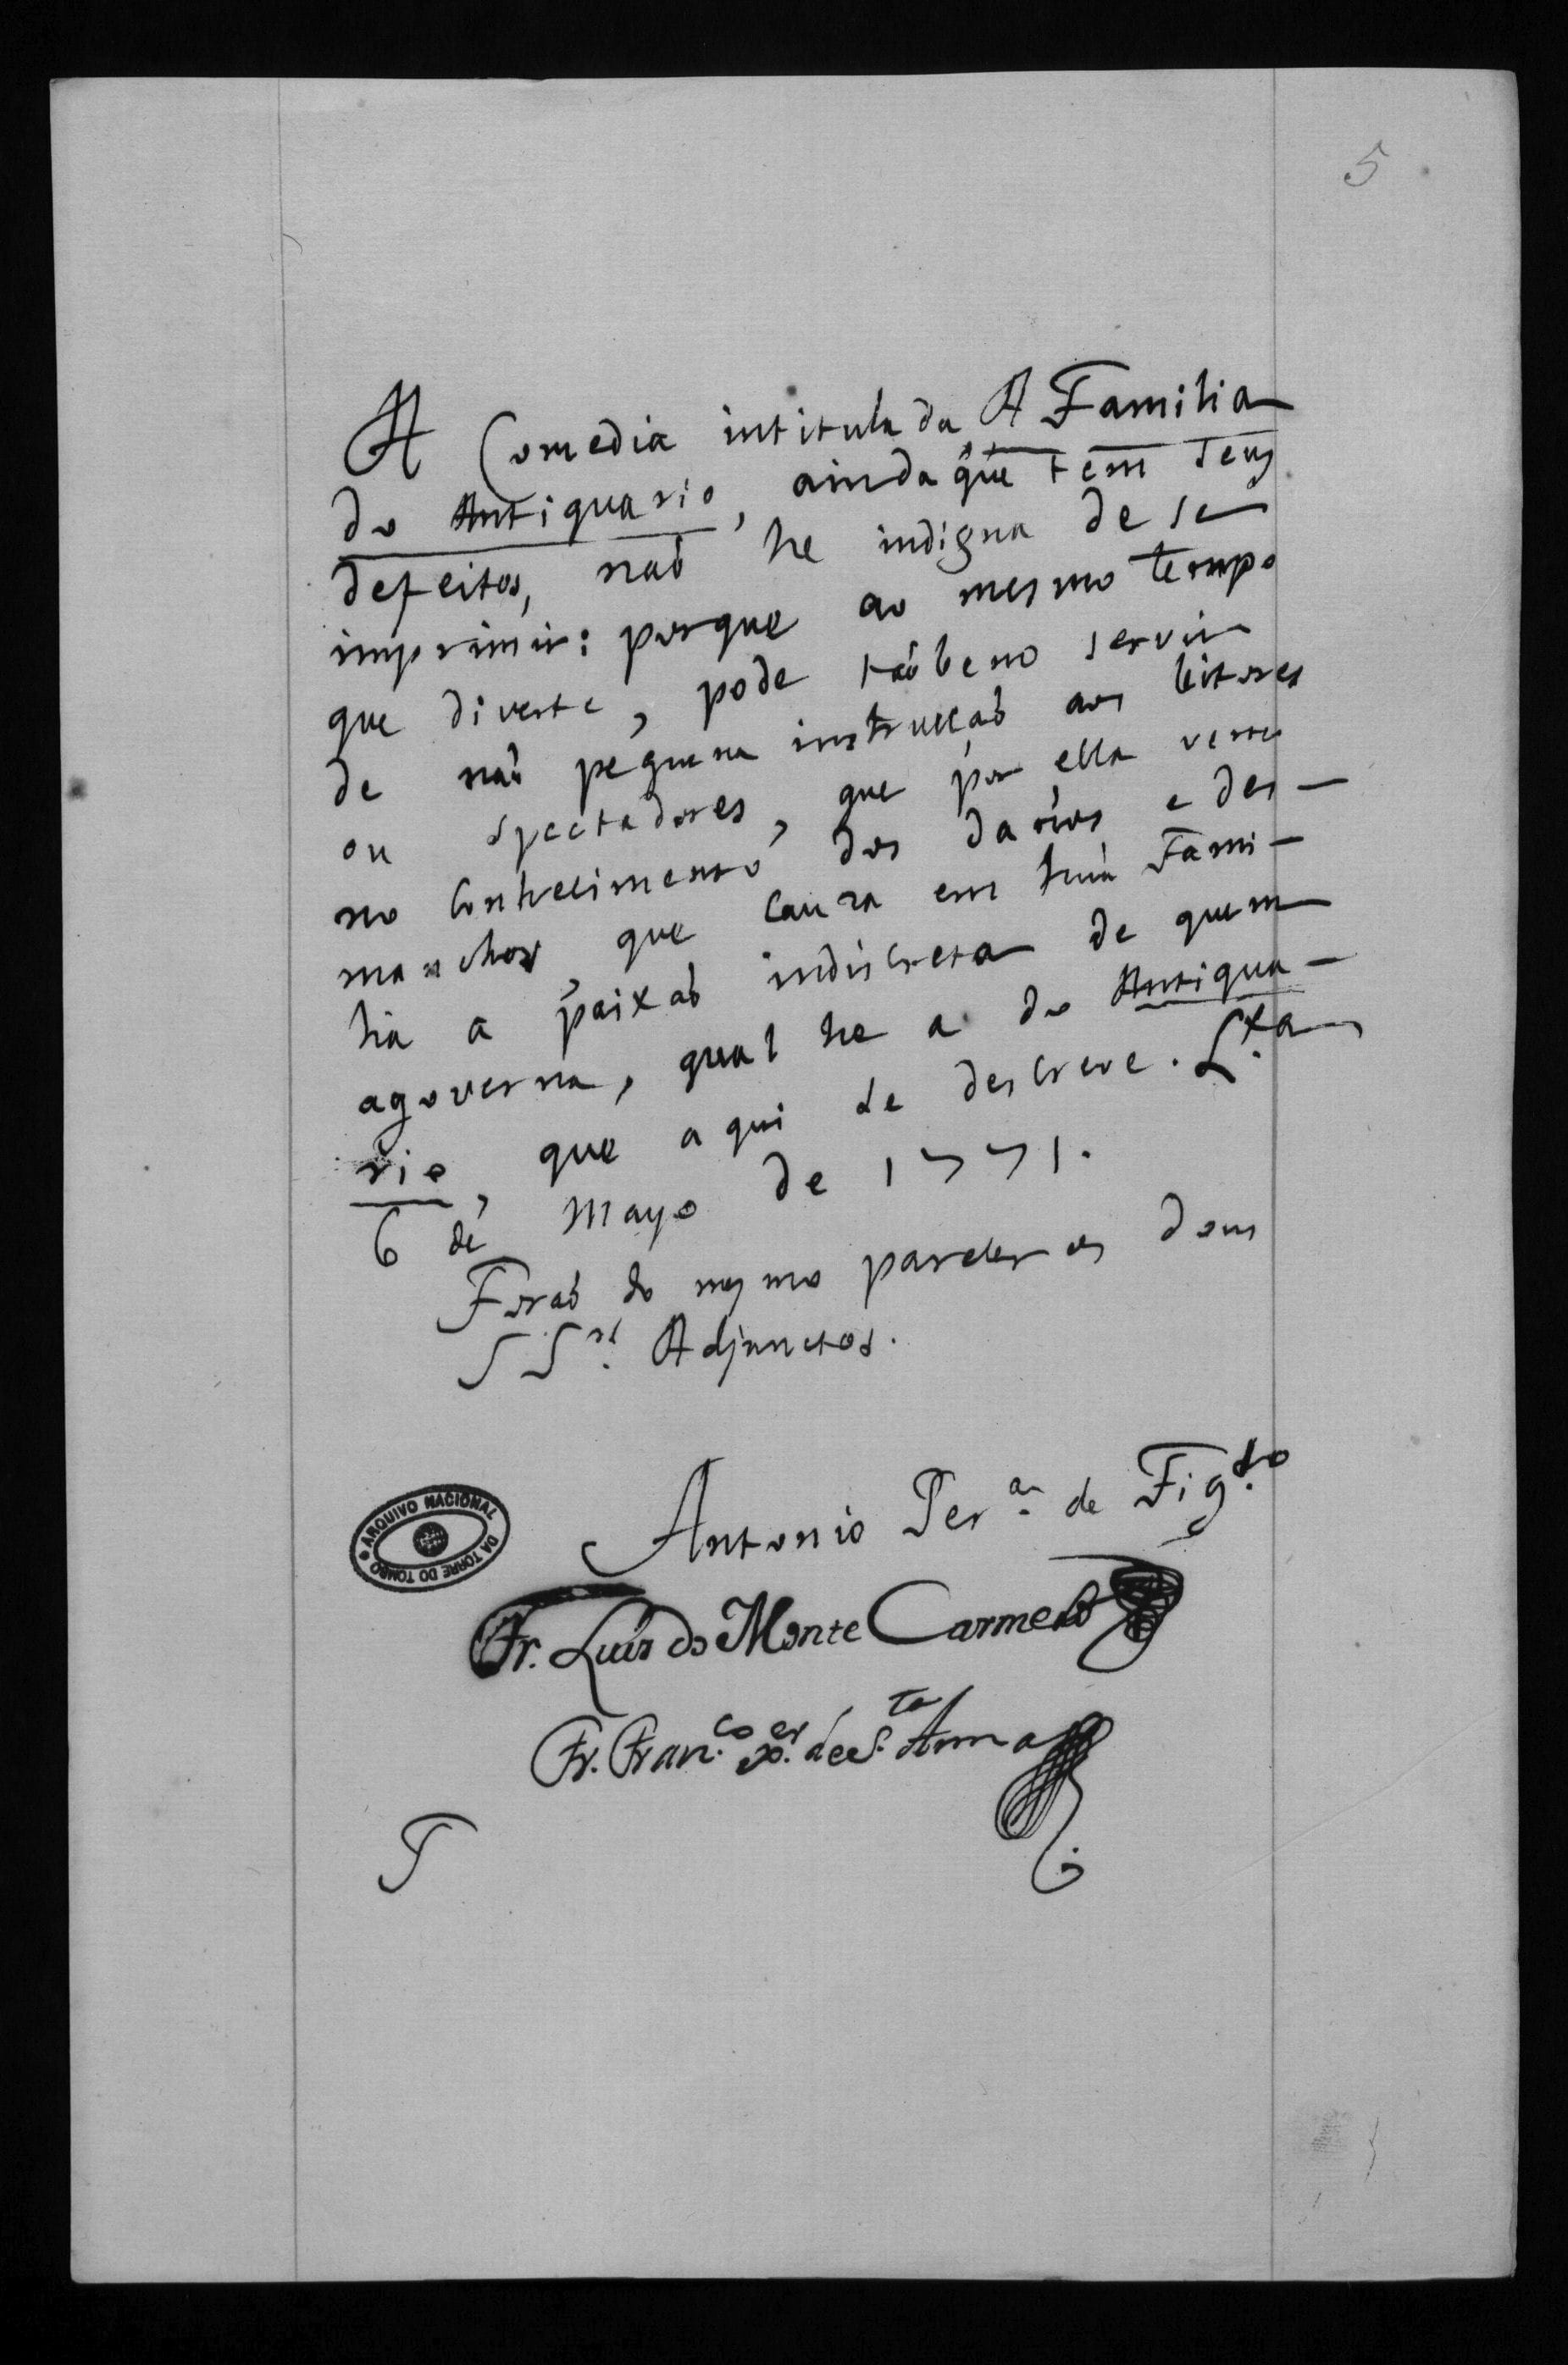 5
A Comedia intitulada A Familia
do Antiquario, ainda que tem seus
defeitos, naõ he indigna de se
imprimir: porque ao mesmo tempo
que diverte, pode tãobem servir
de naõ pequena instrucçaõ aos leitores
ou spectadores, que por ella vem
no conhecimento dos danos e des-
manchos, que causa em huã Fami-
lia a paixaõ indiscreta de quem
a governa, qual he a do Antiqua-
rio, que aqui se descreve. Lxa.
6 de Mayo de 1771.
Foraõ do mesmo parecer os dous
SSres. Adjunctos.
Antonio Pera. de Figdo.
Fr. Luis do Monte Carmelo
Fr. Franco. Xer. de Sta. Anna
ARQUIVO NACIONAL
DA TORRE DO TOMBO